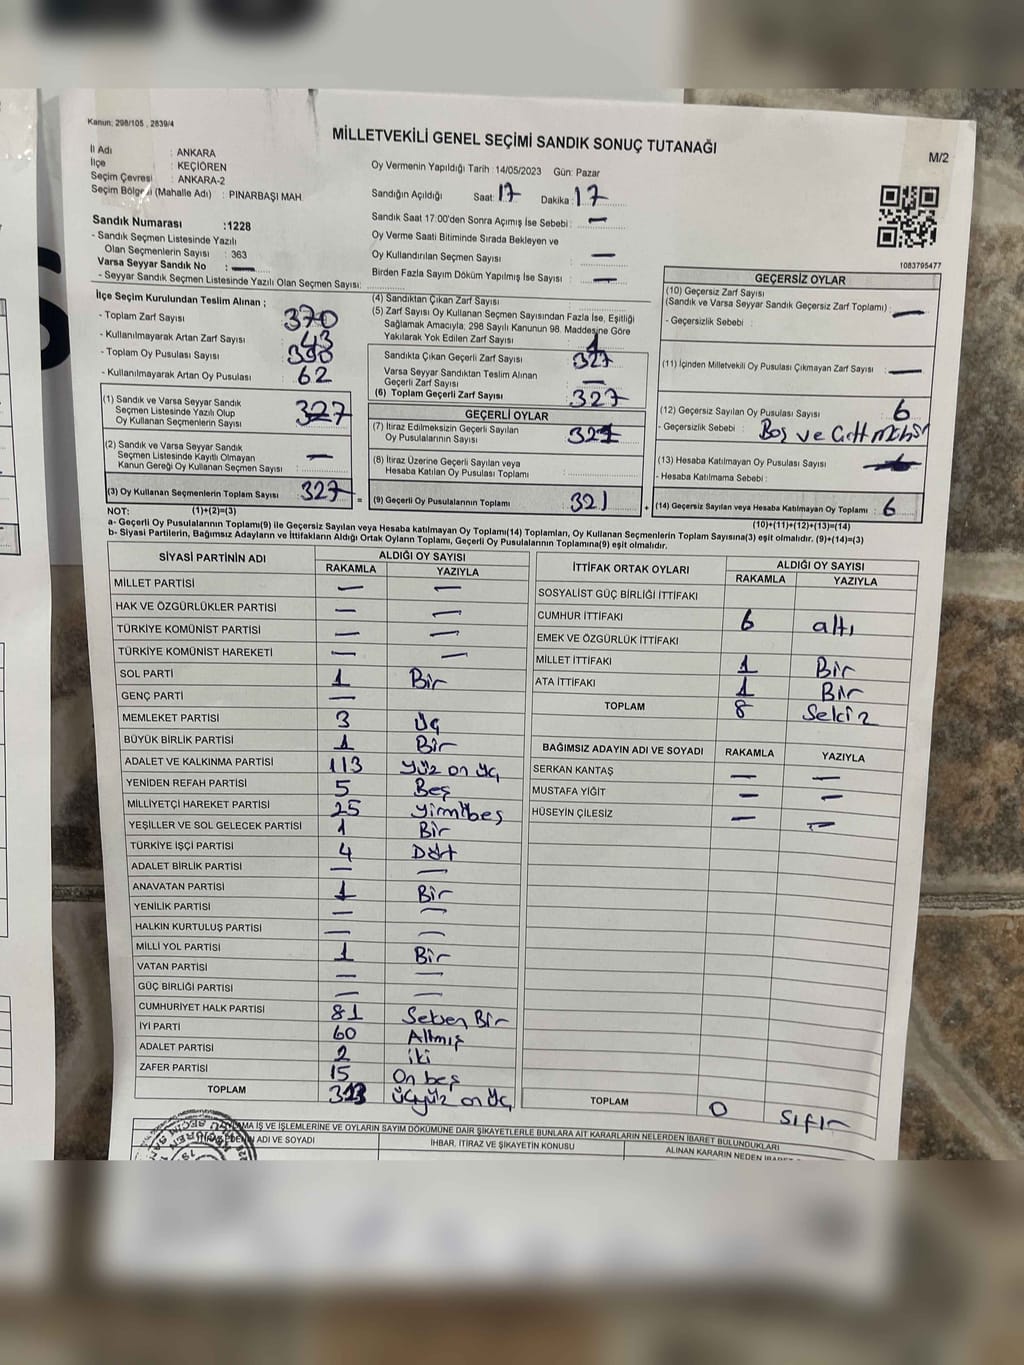 Kanun: 298/105 , 2839/4
MİLLETVEKİLİ GENEL SEÇİMİ SANDIK SONUÇ TUTANAĞI
M/2
İl Adı : ANKARA
İlçe : KEÇİÖREN
Seçim Çevresi : ANKARA-2
Seçim Bölgesi (Mahalle Adı) : PINARBAŞI MAH.
Oy Vermenin Yapıldığı Tarih :14/05/2023 Gün: Pazar
Sandığın Açıldığı Saat: 17 Dakika: 17
Sandık Saat 17:00'den Sonra Açımış İse Sebebi : —
Oy Verme Saati Bitiminde Sırada Bekleyen ve
Oy Kullandırılan Seçmen Sayısı : —
Birden Fazla Sayım Döküm Yapılmış İse Sayısı : —
1083795477
Sandık Numarası :1228
- Sandık Seçmen Listesinde Yazılı
Olan Seçmenlerin Sayısı : 363
Varsa Seyyar Sandık No : —
- Seyyar Sandık Seçmen Listesinde Yazılı Olan Seçmen Sayısı:
İlçe Seçim Kurulundan Teslim Alınan ;
- Toplam Zarf Sayısı : 370
- Kullanılmayarak Artan Zarf Sayısı : 43
- Toplam Oy Pusulası Sayısı :
- Kullanılmayarak Artan Oy Pusulası : 62
(1) Sandık ve Varsa Seyyar Sandık
Seçmen Listesinde Yazılı Olup
Oy Kullanan Seçmenlerin Sayısı : 327
(2) Sandık ve Varsa Seyyar Sandık
Seçmen Listesinde Kayıtlı Olmayan
Kanun Gereği Oy Kullanan Seçmen Sayısı : —
(3) Oy Kullanan Seçmenlerin Toplam Sayısı : 327
(4) Sandıktan Çıkan Zarf Sayısı :
(5) Zarf Sayısı Oy Kullanan Seçmen Sayısından Fazla İse, Eşitliği
Sağlamak Amacıyla, 298 Sayılı Kanunun 98. Maddesine Göre
Yakılarak Yok Edilen Zarf Sayısı :
Sandıkta Çıkan Geçerli Zarf Sayısı : 327
Varsa Seyyar Sandıktan Teslim Alınan
Geçerli Zarf Sayısı : —
(6) Toplam Geçerli Zarf Sayısı : 327
GEÇERLİ OYLAR
(7) İtiraz Edilmeksizin Geçerli Sayılan
Oy Pusulalarının Sayısı : 321
(8) İtiraz Üzerine Geçerli Sayılan veya
Hesaba Katılan Oy Pusulası Toplamı :
= (9) Geçerli Oy Pusulalarının Toplamı : 321
GEÇERSİZ OYLAR
(10) Geçersiz Zarf Sayısı
(Sandık ve Varsa Seyyar Sandık Geçersiz Zarf Toplamı) : —
- Geçersizlik Sebebi :
(11) İçinden Milletvekili Oy Pusulası Çıkmayan Zarf Sayısı : —
(12) Geçersiz Sayılan Oy Pusulası Sayısı : 6
- Geçersizlik Sebebi : Boş ve Çift mühür
(13) Hesaba Katılmayan Oy Pusulası Sayısı :
- Hesaba Katılmama Sebebi :
+ (14) Geçersiz Sayılan veya Hesaba Katılmayan Oy Toplamı : 6
NOT: (1)+(2)=(3)
(10)+(11)+(12)+(13)=(14)
a- Geçerli Oy Pusulalarının Toplamı(9) ile Geçersiz Sayılan veya Hesaba katılmayan Oy Toplamı(14) Toplamları, Oy Kullanan Seçmenlerin Toplam Sayısına(3) eşit olmalıdır. (9)+(14)=(3)
b- Siyasi Partilerin, Bağımsız Adayların ve İttifakların Aldığı Ortak Oyların Toplamı, Geçerli Oy Pusulalarının Toplamına(9) eşit olmalıdır.
SİYASİ PARTİNİN ADI ALDIĞI OY SAYISI
RAKAMLA YAZIYLA
MİLLET PARTİSİ — —
HAK VE ÖZGÜRLÜKLER PARTİSİ — —
TÜRKİYE KOMÜNİST PARTİSİ — —
TÜRKİYE KOMÜNİST HAREKETİ — —
SOL PARTİ 1 Bir
GENÇ PARTİ —
MEMLEKET PARTİSİ 3 Üç
BÜYÜK BİRLİK PARTİSİ 1 Bir
ADALET VE KALKINMA PARTİSİ 113 Yüz on üç
YENİDEN REFAH PARTİSİ 5 Beş
MİLLİYETÇİ HAREKET PARTİSİ 25 yirmibeş
YEŞİLLER VE SOL GELECEK PARTİSİ 1 Bir
TÜRKİYE İŞÇİ PARTİSİ 4 Dört
ADALET BİRLİK PARTİSİ — —
ANAVATAN PARTİSİ 1 Bir
YENİLİK PARTİSİ — —
HALKIN KURTULUŞ PARTİSİ — —
MİLLİ YOL PARTİSİ 1 Bir
VATAN PARTİSİ — —
GÜÇ BİRLİĞİ PARTİSİ — —
CUMHURİYET HALK PARTİSİ 81 Seksen Bir
İYİ PARTİ 60 Altmış
ADALET PARTİSİ 2 iki
ZAFER PARTİSİ 15 On beş
TOPLAM 313 üçyüz on üç
İTTİFAK ORTAK OYLARI ALDIĞI OY SAYISI
RAKAMLA YAZIYLA
SOSYALİST GÜÇ BİRLİĞİ İTTİFAKI
CUMHUR İTTİFAKI 6 altı
EMEK VE ÖZGÜRLÜK İTTİFAKI
MİLLET İTTİFAKI 1 Bir
ATA İTTİFAKI 1 Bir
TOPLAM 8 Sekiz
BAĞIMSIZ ADAYIN ADI VE SOYADI RAKAMLA YAZIYLA
SERKAN KANTAŞ — —
MUSTAFA YİĞİT — —
HÜSEYİN ÇİLESİZ — —
TOPLAM 0 sıfır
İŞ VE İŞLEMLERİNE VE OYLARIN SAYIM DÖKÜMÜNE DAİR ŞİKAYETLERLE BUNLARA AİT KARARLARIN NELERDEN İBARET BULUNDUKLARI
ADI VE SOYADI İHBAR, İTİRAZ VE ŞİKAYETİN KONUSU ALINAN KARARIN NEDEN